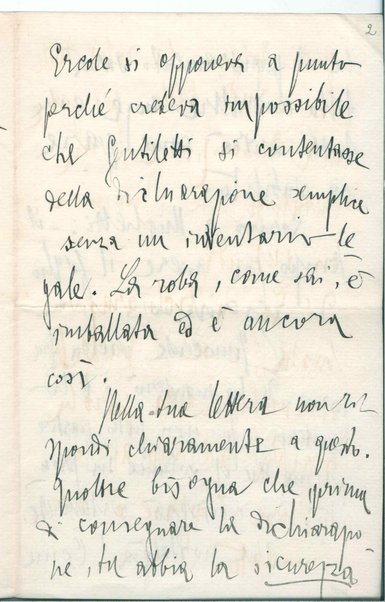 2
Ercole si opponeva a punto
perché credeva impossibile
che Gentiletti si contentasse
della dichiarazione semplice
senza un inventario le
gale. La roba, come sai, è
imballata ed è ancora
così.
Nella tua lettera non ri
spondi chiaramente a questo.
Inoltre bisogna che prima
di consegnare la dichiarazio
ne, tu abbia la sicurezza